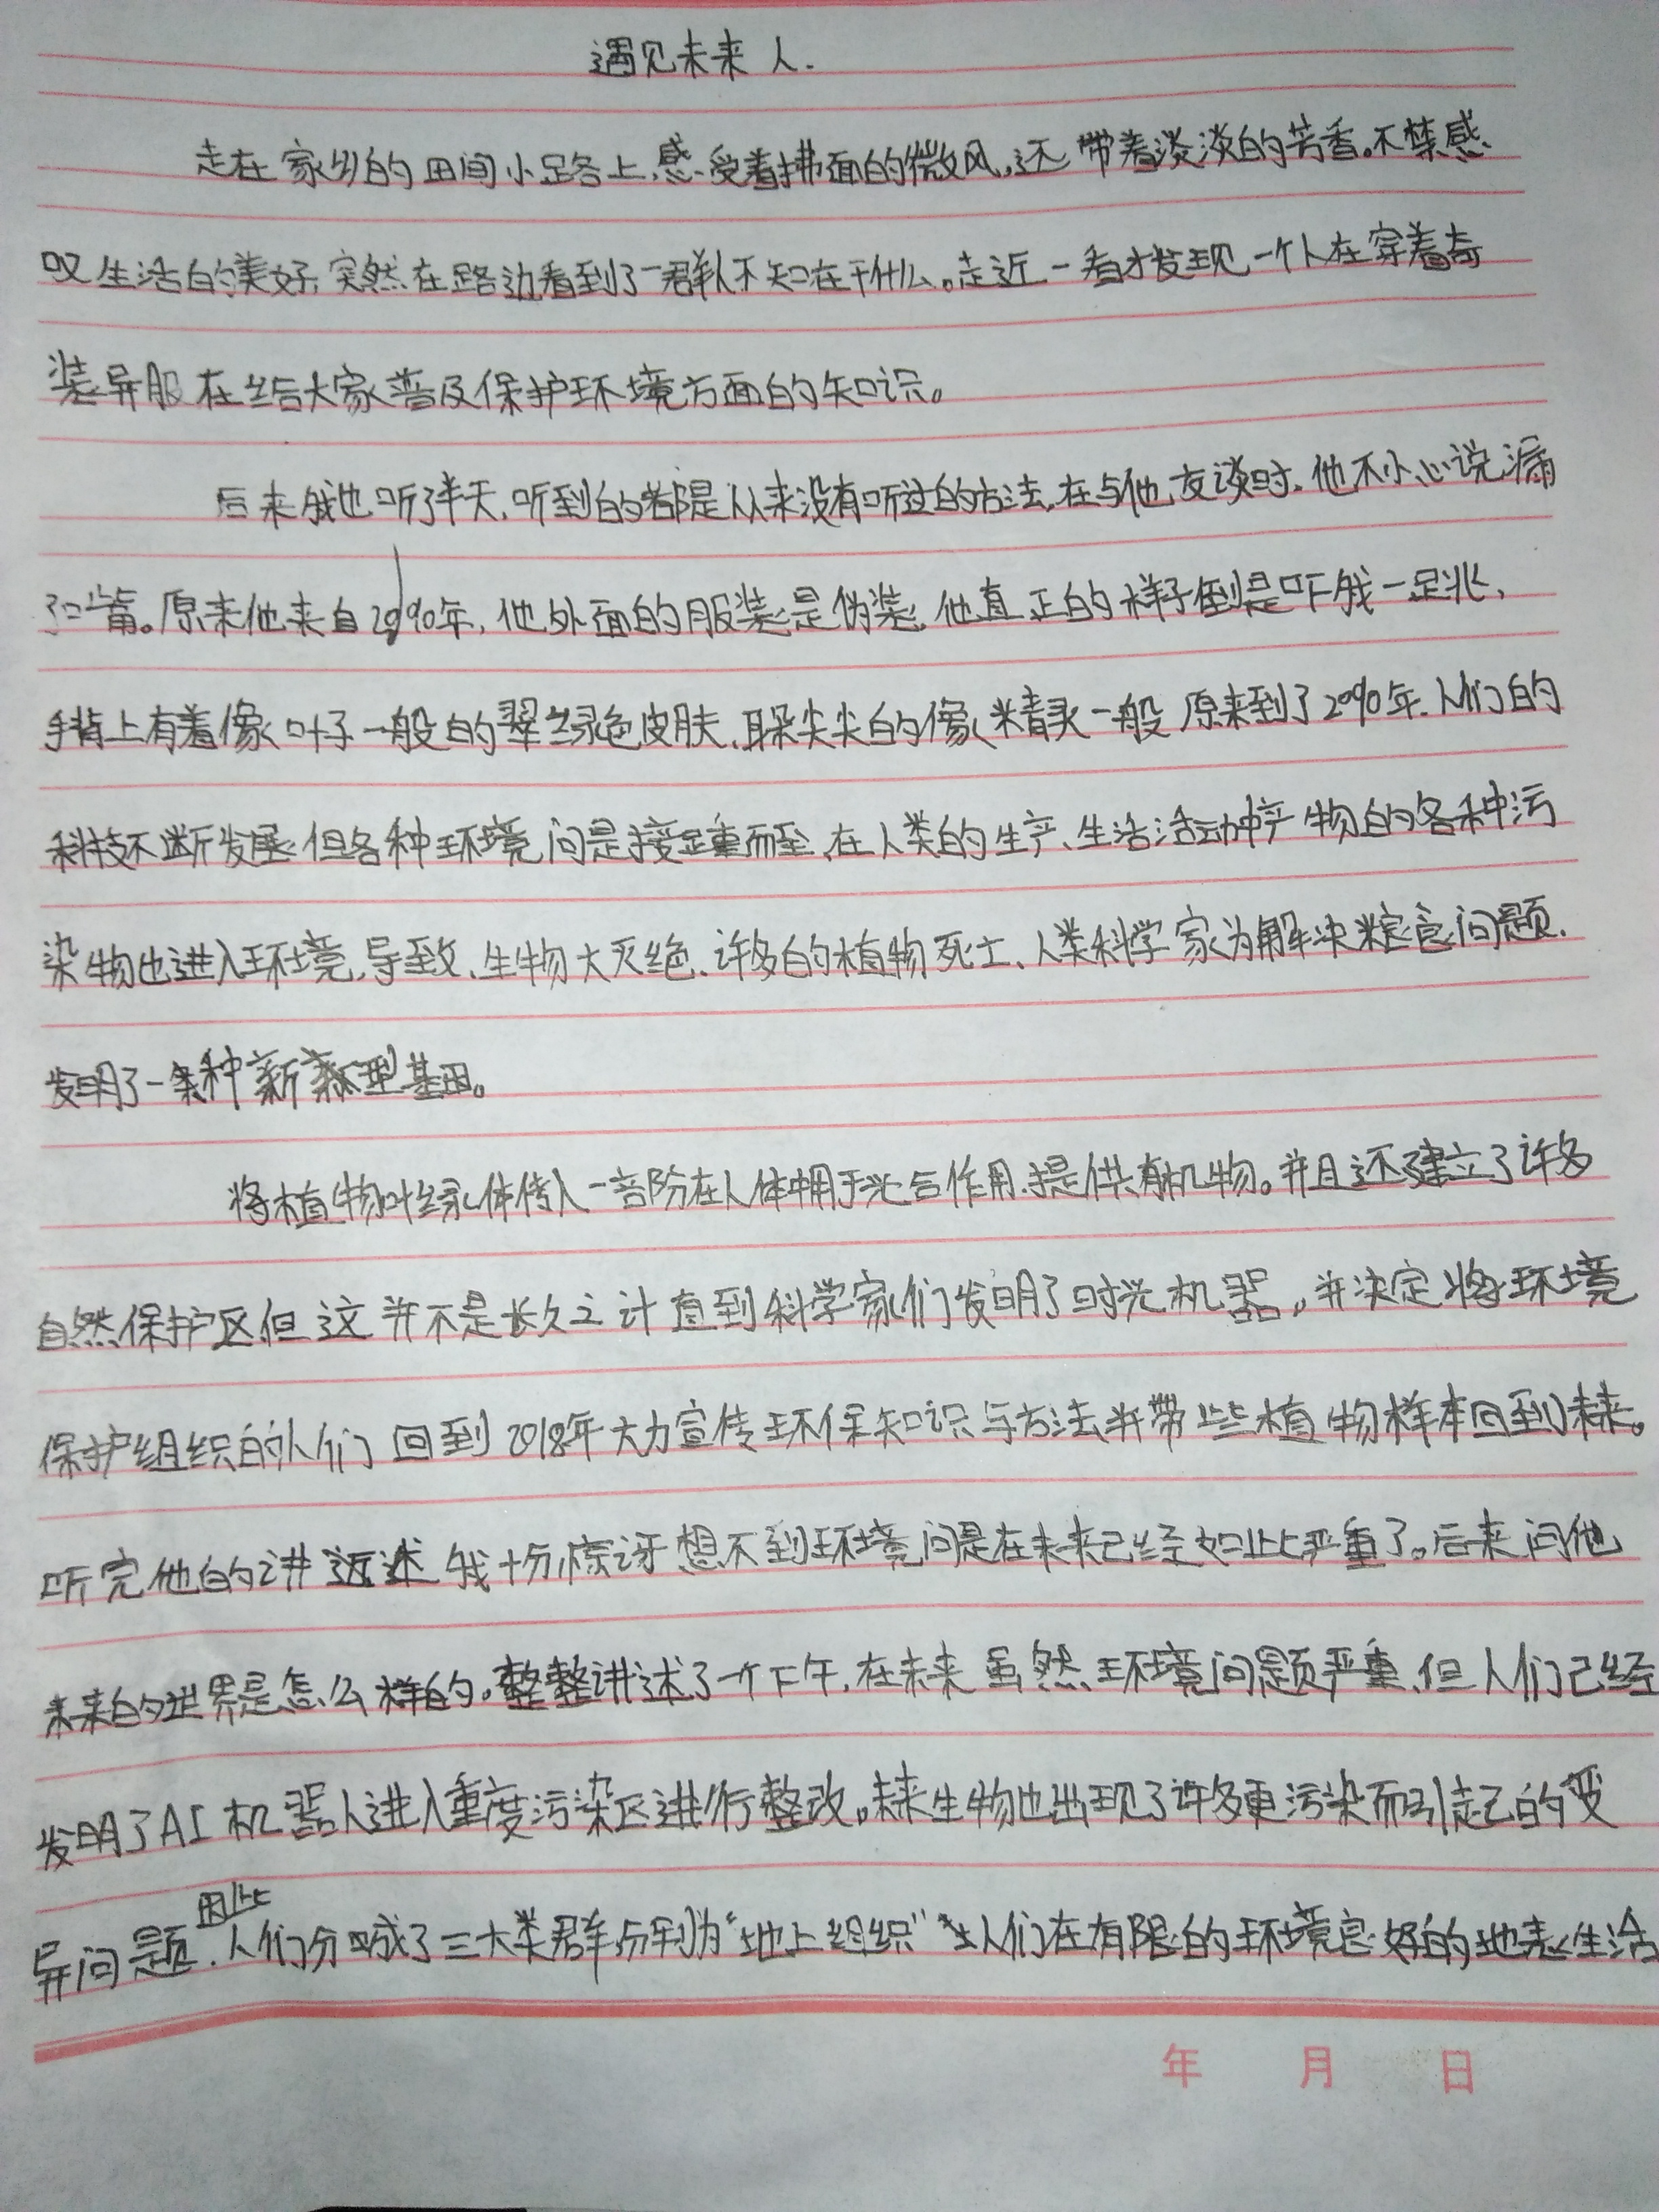 遇见未来人.
走在家乡的田间小路上,感受着拂面的微风,还带着淡淡的芳香。不禁感
叹生活的美好,突然在路边看到了一群人不知在干什么。走近一看才发现一个人在穿着奇
装异服在给大家普及保护环境方面的知识。
后来我也听了半天,听到的都是从来没有听过的方法,在与他交谈时,他不小心说漏
了嘴。原来他来自2090年,他外面的服装是伪装,他真正的样子倒是吓我一跳,
手背上有着像叶子一般的翠绿色皮肤,耳朵尖尖的像精灵一般 原来到了2090年.人们的
科技不断发展 但各种环境问是接踵而至,在人类的生产、生活活动中产物的各种污
染物也进入环境,导致,生物大灭绝、许多的植物死亡、人类科学家为解决粮食问题.
发明了一种新型基因。
将植物叶绿体传入一部份在人体中用于光合作用.提供有机物。并且还建立了许多
自然保护区但这并不是长久之计 直到科学家们发明了时光机器,并决定将环境
保护组织的人们回到2018年大力宣传环保知识与方法并带些植物样本回到未来。
听完他的讲述 我十分惊讶 想不到环境问是在未来已经如此严重了。后来问他
未来的世界是怎么样的。整整讲述了一个下午,在未来虽然环境问题严重,但人们已经
发明了AI机器人进入重度污染区进行整改。未来生物也出现了许多更污染而引起的变
异问题.因此人们分成了三大类群分别为“地上组织”人们在有限的环境良好的地表生活
年 月 日